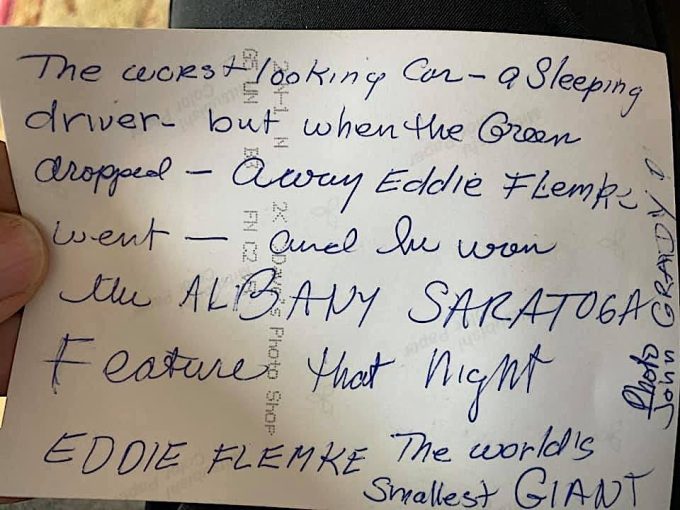 The worst looking Car - a Sleeping
driver - but when the Green
dropped - away Eddie Flemke
went - and he won
the ALBANY SARATOGA
Feature that night
EDDIE FLEMKE The world's
smallest GIANT
Photo
John GRADY
Photo Shop